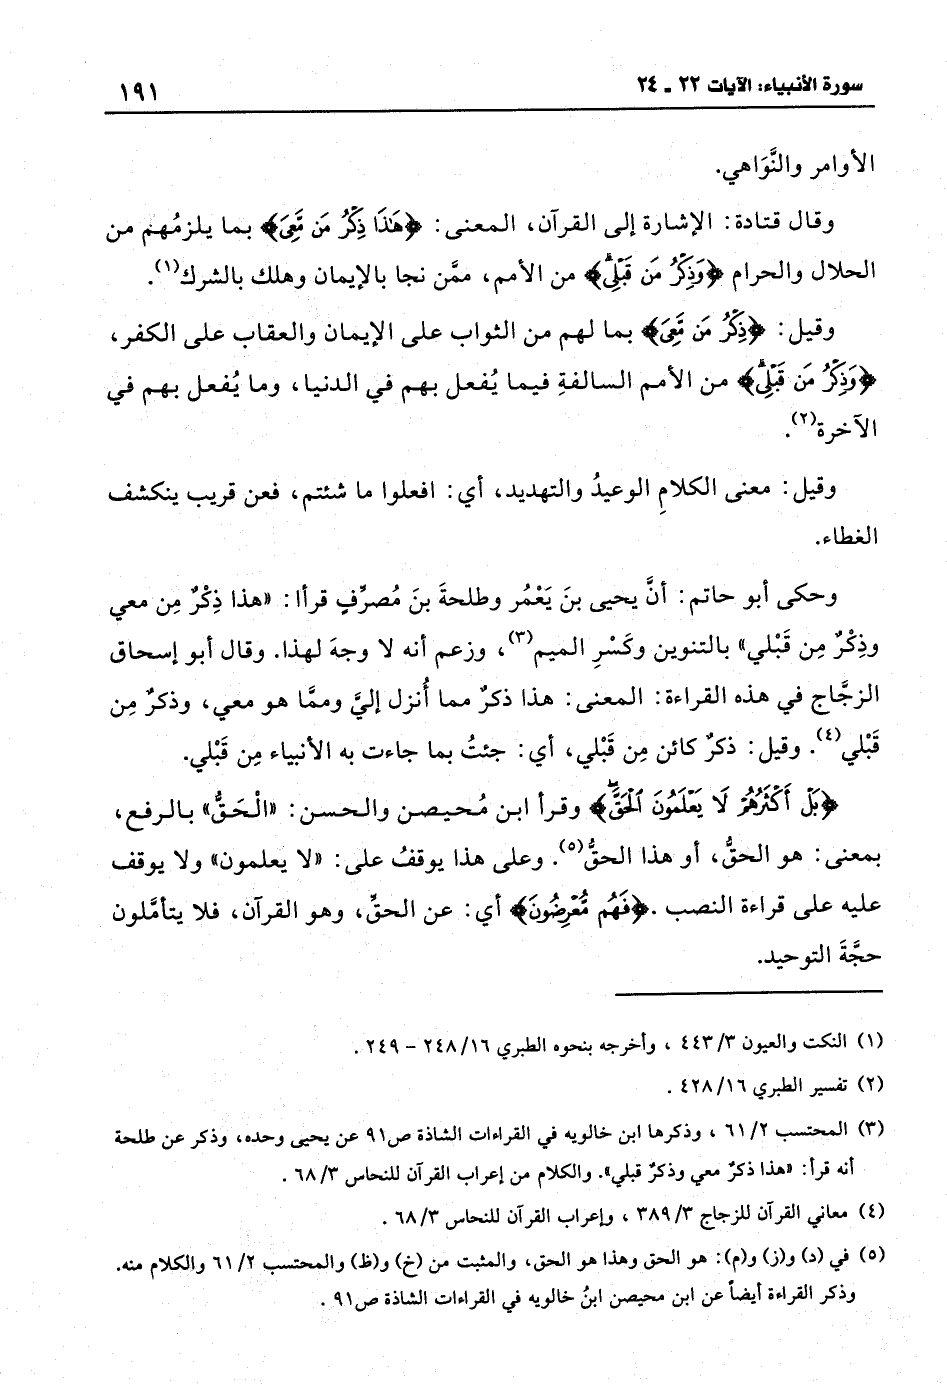 سورة الأنبياء: الآيات ٢٢ - ٢٤
١٩١
الأوامر والنَّوَاهي.
وقال قتادة: الإشارة إلى القرآن، المعنى: ﴿هَٰذَا ذِكْرُ مَن مَّعِىَ﴾ بما يلزمُهم من
الحلال والحرام ﴿وَذِكْرُ مَن قَبْلِىۚ﴾ من الأمم، ممَّن نجا بالإيمان وهلك بالشرك(١).
وقيل: ﴿ذِكْرُ مَن مَّعِىَ﴾ بما لهم من الثواب على الإيمان والعقاب على الكفر،
﴿وَذِكْرُ مَن قَبْلِىۚ﴾ من الأمم السالفةِ فيما يُفعل بهم في الدنيا، وما يُفعل بهم في
الآخرة(٢).
وقيل: معنى الكلامِ الوعيدُ والتهديد، أي: افعلوا ما شئتم، فعن قريب ينكشف
الغطاء.
وحكى أبو حاتم: أنَّ يحيى بنَ يَعْمُر وطلحةَ بنَ مُصرِّفٍ قرأا: «هذا ذِكْرٌ مِن معي
وذِكْرٌ مِن قَبْلي» بالتنوين وكَسْرِ الميم(٣)، وزعم أنه لا وجهَ لهذا. وقال أبو إسحاق
الزجَّاج في هذه القراءة: المعنى: هذا ذكرٌ مما أُنزل إليَّ وممَّا هو معي، وذكرٌ مِن
قَبْلي(٤). وقيل: ذكرٌ كائن مِن قَبْلي، أي: جئتُ بما جاءت به الأنبياء مِن قَبْلي.
﴿بَلْ أَكْثَرُهُمْ لَا يَعْلَمُونَ ٱلْحَقَّۖ﴾ وقرأ ابن مُحيصن والحسن: «الْحَقُّ» بالرفع،
بمعنى: هو الحقُّ، أو هذا الحقُّ(٥). وعلى هذا يوقفُ على: «لا يعلمون» ولا يوقف
عليه على قراءة النصب .﴿فَهُم مُّعْرِضُونَ﴾ أي: عن الحقِّ، وهو القرآن، فلا يتأمَّلون
حجَّةَ التوحيد.
(١) النكت والعيون ٤٤٣/٣ ، وأخرجه بنحوه الطبري ٢٤٨/١٦ - ٢٤٩ .
(٢) تفسير الطبري ٤٢٨/١٦ .
(٣) المحتسب ٦١/٢ ، وذكرها ابن خالويه في القراءات الشاذة ص٩١ عن يحيى وحده، وذكر عن طلحة
أنه قرأ: «هذا ذكرٌ معي وذكرٌ قبلي». والكلام من إعراب القرآن للنحاس ٦٨/٣ .
(٤) معاني القرآن للزجاج ٣٨٩/٣ ، وإعراب القرآن للنحاس ٦٨/٣ .
(٥) في (د) و(ز) و(م): هو الحق وهذا هو الحق، والمثبت من (خ) و(ظ) والمحتسب ٦١/٢ والكلام منه.
وذكر القراءة أيضاً عن ابن محيصن ابنُ خالويه في القراءات الشاذة ص٩١ .